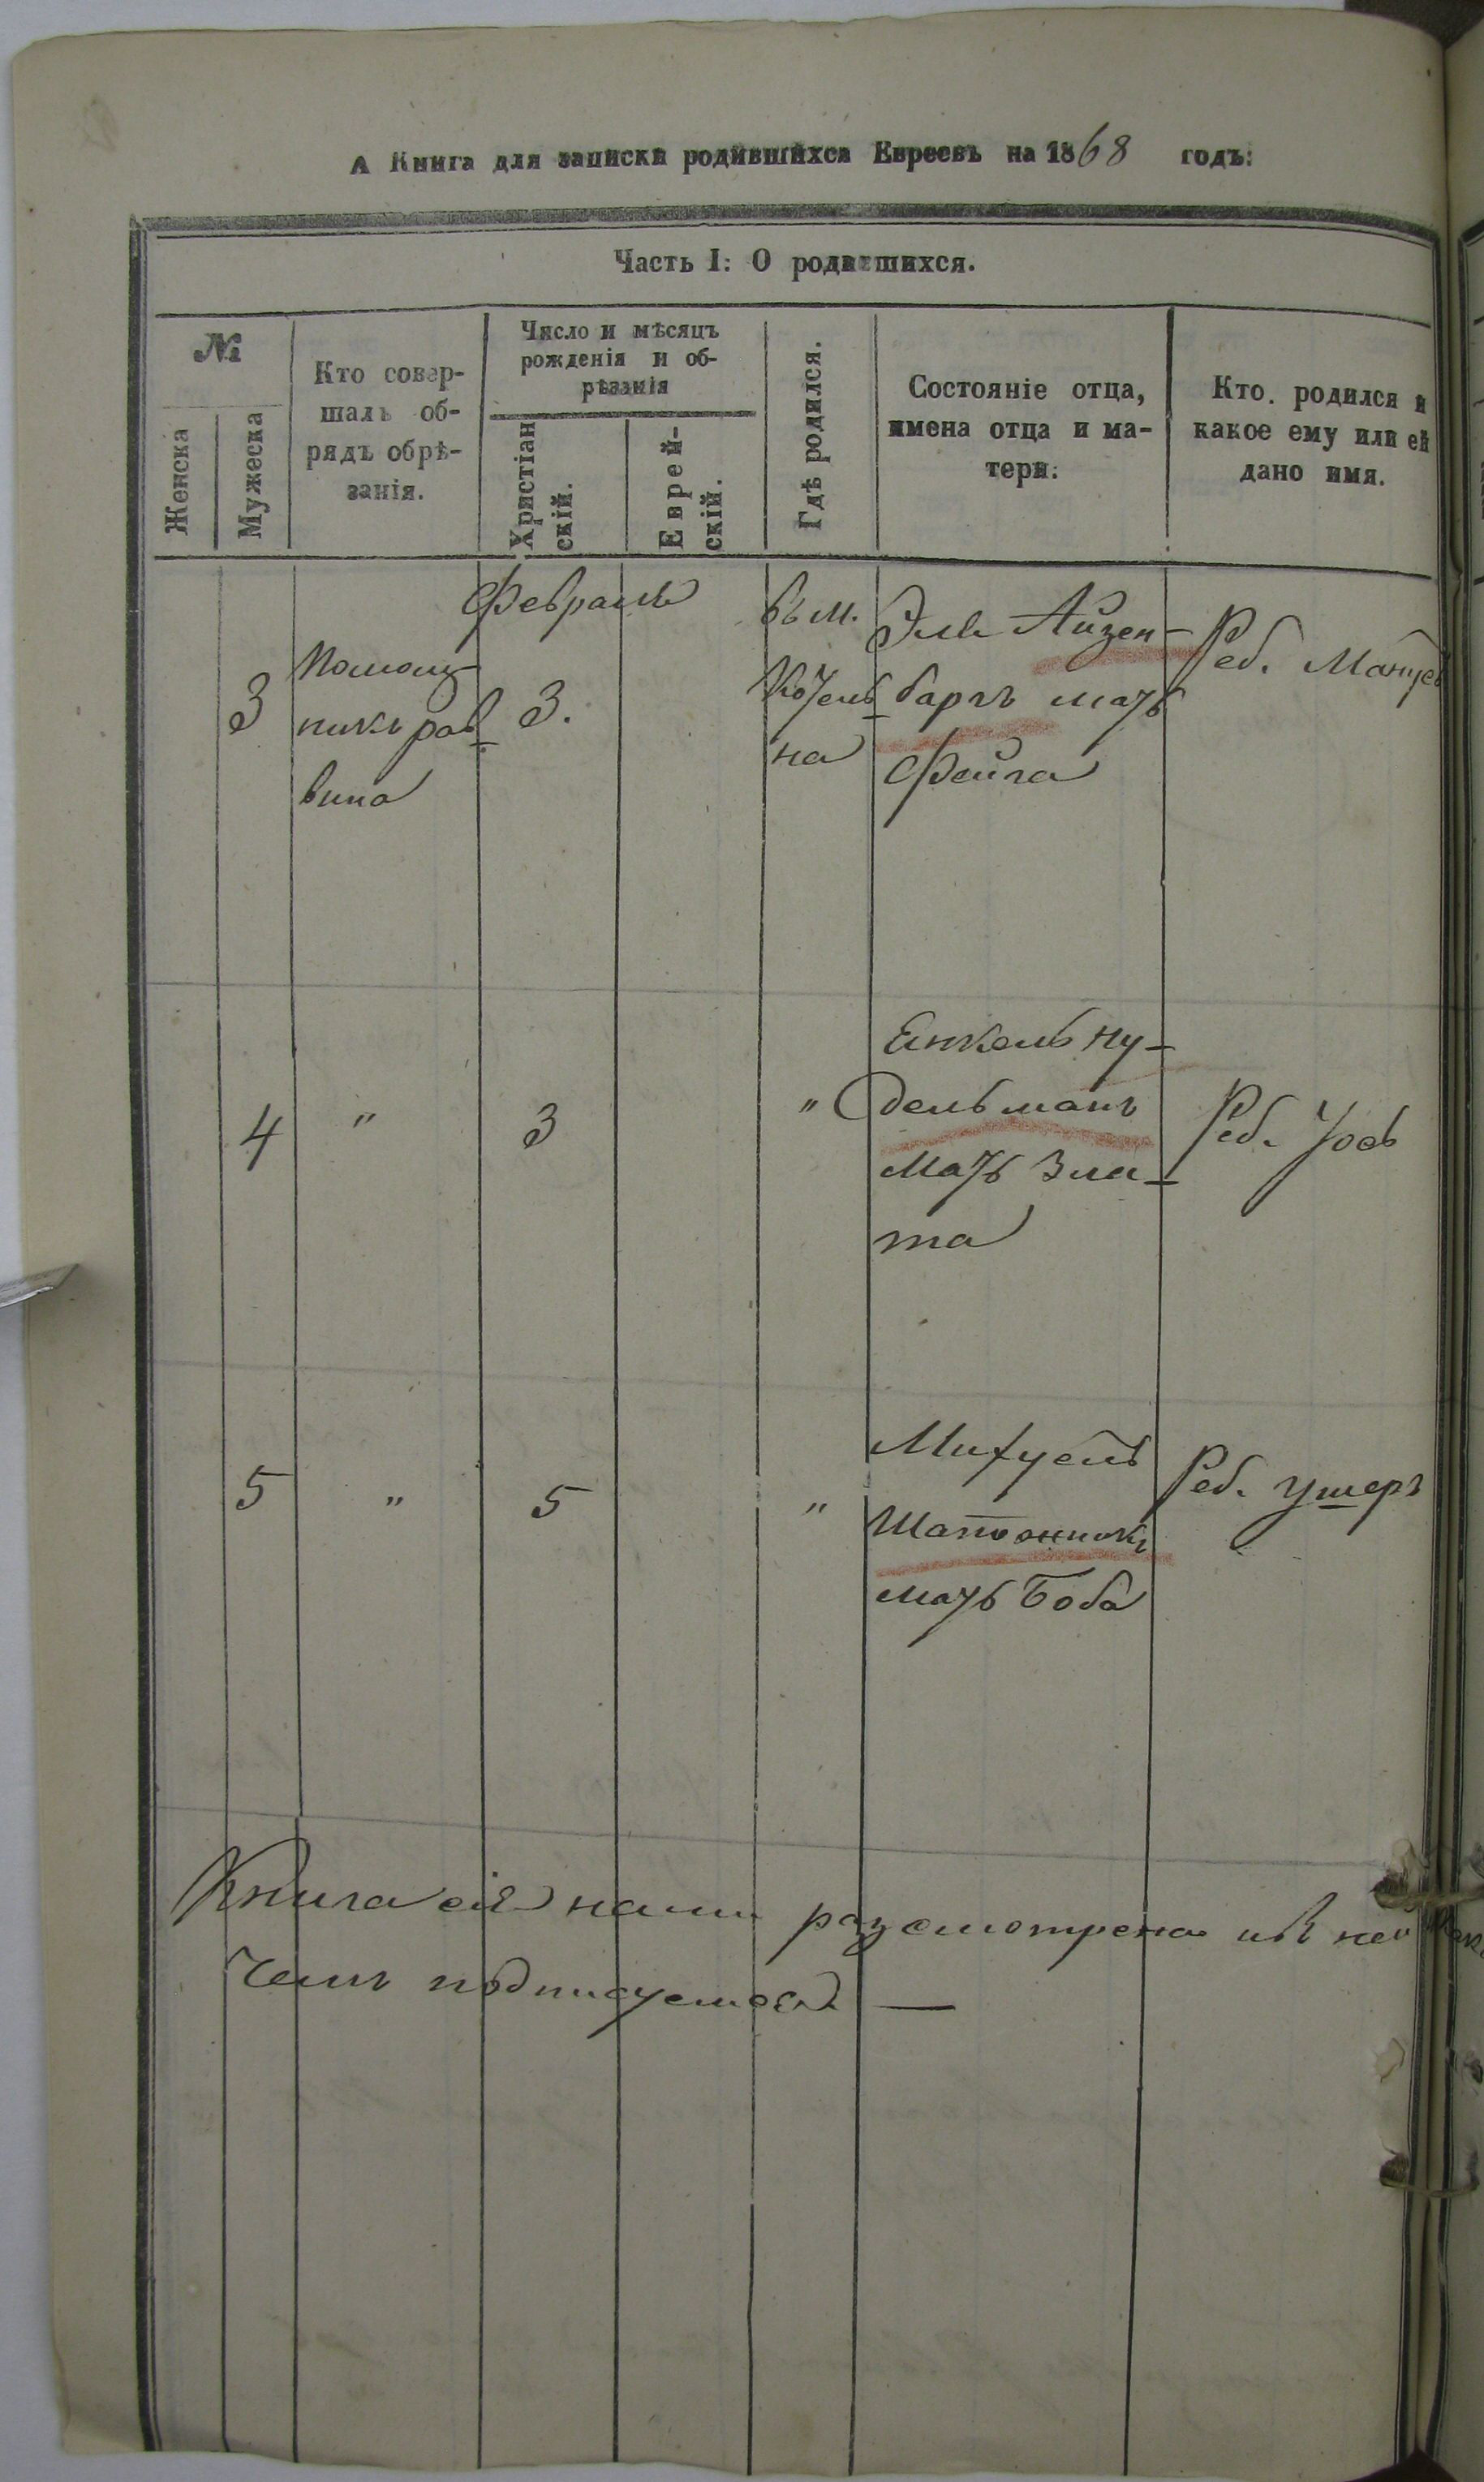 А Книга для записки родившихся Евреевъ на 1868 годъ:
Часть I: О родившихся.
№
Женска
Мужеска
Кто совер-
шалъ об-
рядъ обрѣ-
занія.
Число и мѣсяцъ
рожденія и об-
рѣзанія
Христіан
скій.
Еврей-
скій.
Гдѣ родился.
Состояніе отца,
имена отца и ма-
тери:
Кто родился и
какое ему или ей
дано имя.
Февраль
3
Помощ-
никъ рав-
вина
3.
въ м.
Котель-
на
Эль Айзен-
баргъ мать
Фейга
Реб.
4
"
3
"
Енкель Ну-
дельманъ
Мать Зла-
та
Реб. Уось
5
"
5
"
Михуель
мать Боба
Реб. Ушеръ
Книга сія нами разсмотрена и въ ней
Чемъ подписуемся —